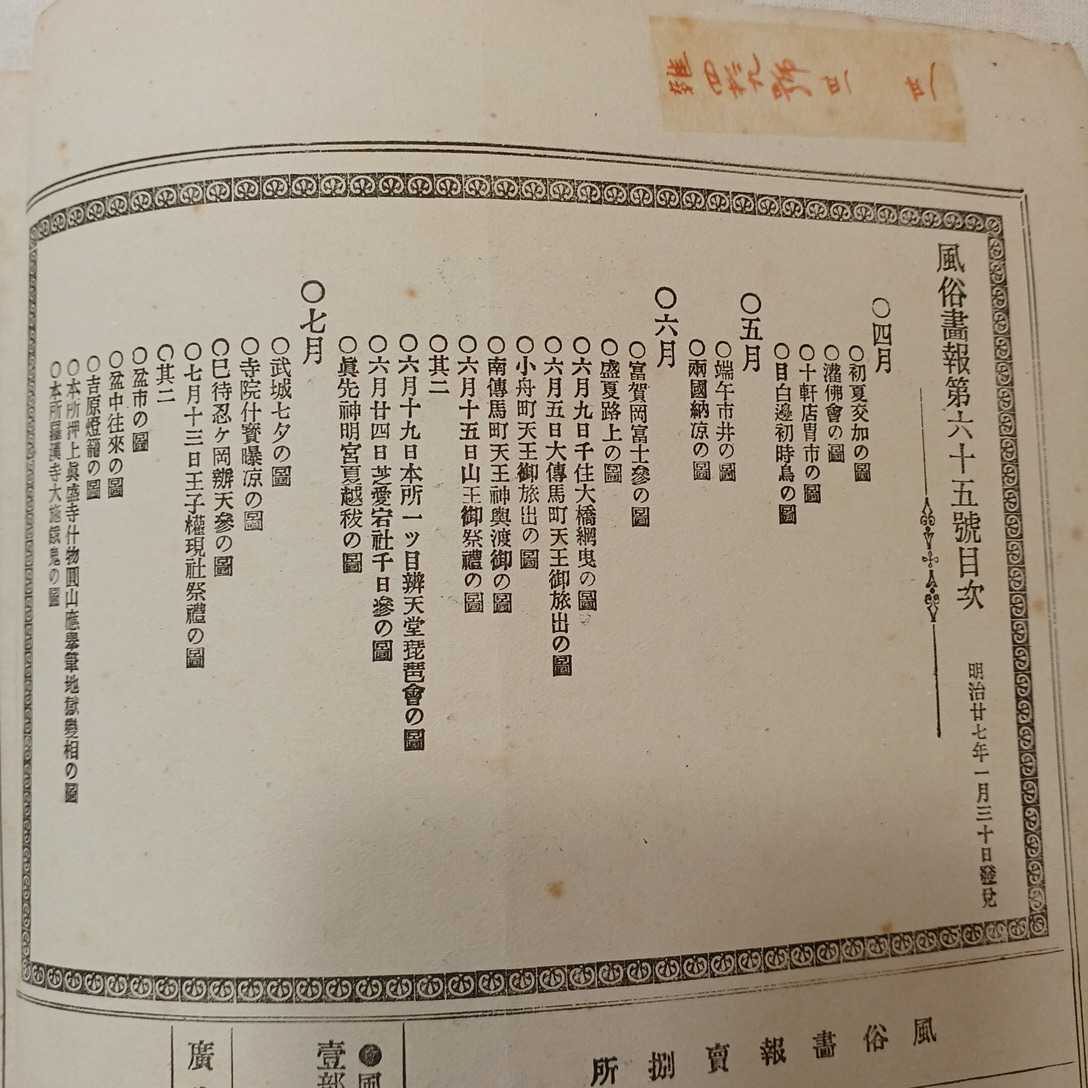 風俗畫報第六十五號目次
明治廿七年一月三十日發兌
〇四月
〇初夏交加の圖
〇灌佛會の圖
〇十軒店冑市の圖
〇目白邊初時鳥の圖
〇五月
〇端午市井の圖
〇兩國納凉の圖
〇六月
〇富賀岡富士參の圖
〇盛夏路上の圖
〇六月九日千住大橋網曳の圖
〇六月五日大傳馬町天王御旅出の圖
〇小舟町天王御旅出の圖
〇南傳馬町天王神輿渡御の圖
〇六月十五日山王御祭禮の圖
〇其二
〇六月十九日本所一ッ目辨天堂琵琶會の圖
〇六月廿四日芝愛宕社千日參の圖
〇眞先神明宮夏越秡の圖
〇七月
〇武城七夕の圖
〇寺院什寳曝凉の圖
〇巳待忍ヶ岡辨天參の圖
〇七月十三日王子權現社祭禮の圖
〇其二
〇盆市の圖
〇盆中往來の圖
〇吉原燈籠の圖
〇本所押上眞盛寺什物圓山應擧筆地獄變相の圖
〇本所羅漢寺大施餓鬼の圖
風俗畫報賣捌所
壹部
廣